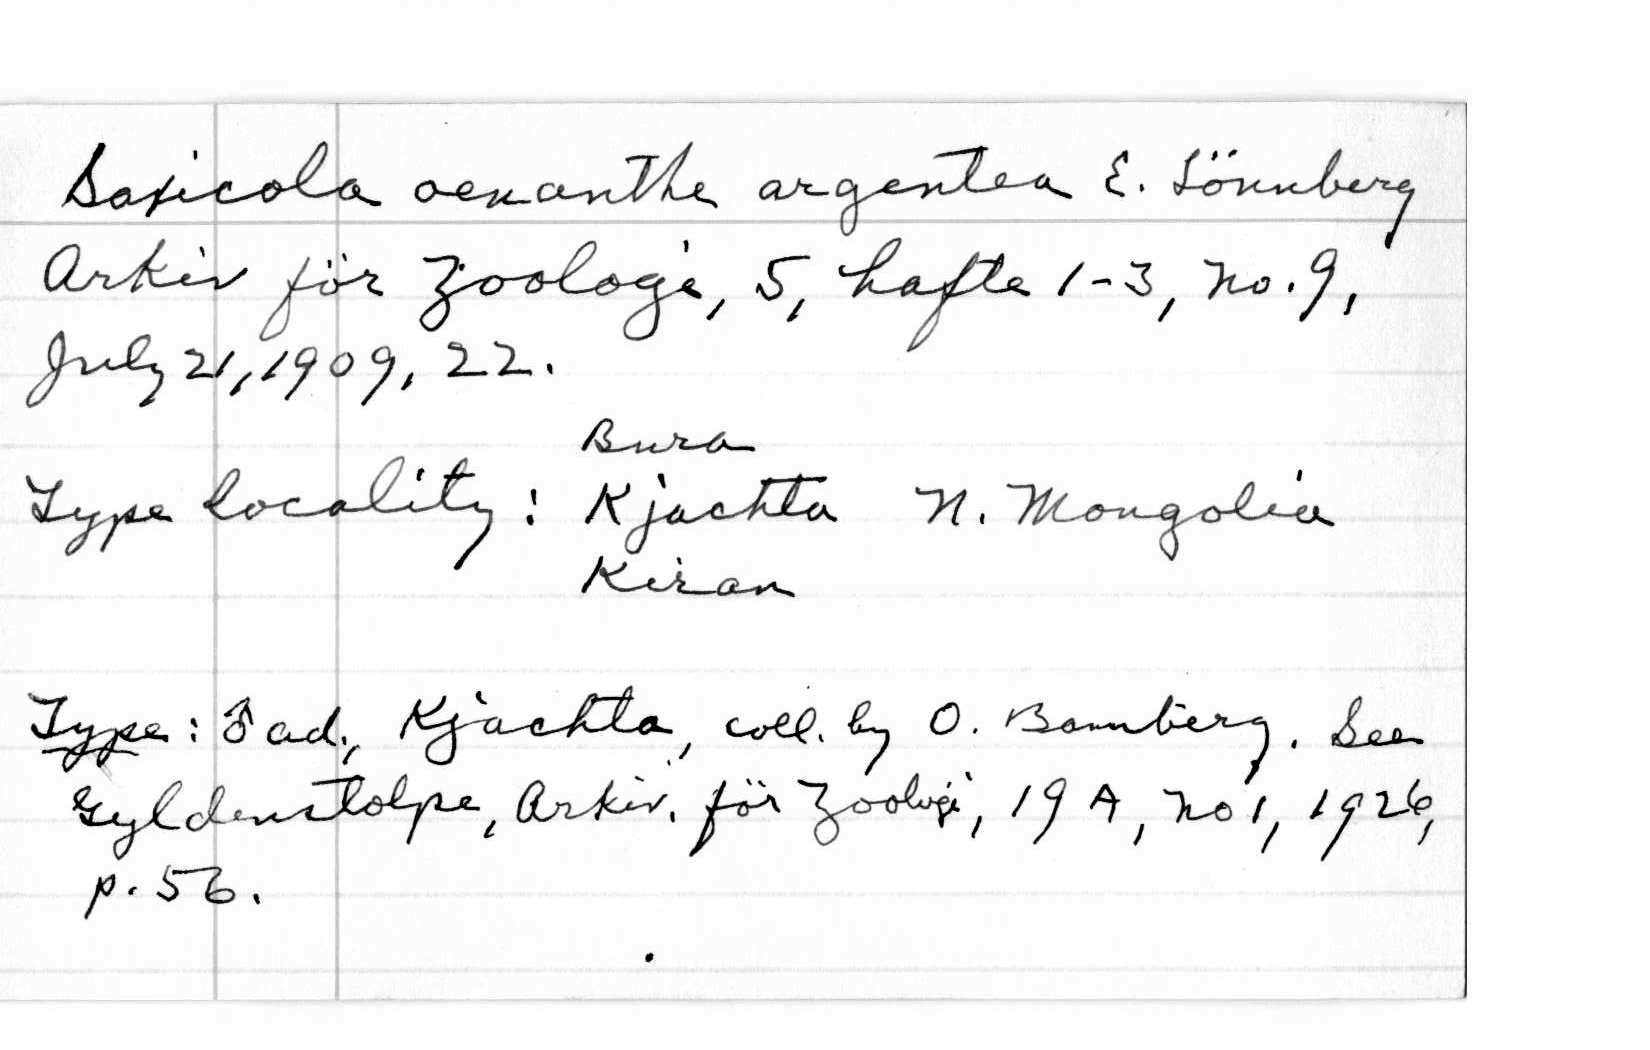 Saxicola oenanthe argentea E. Lönnberg
Arkiv för Zoologi, 5, hafte 1-3, no. 9,
July 21, 1909, 22.
Bura
Type locality: Kjachta N. Mongolia
Kiran
Type: ♂ ad., Kjachta, coll. by O. Bamberg. See
Gyldenstolpe, Arkiv. för Zoologi, 19 A, no 1, 1926,
p. 56.